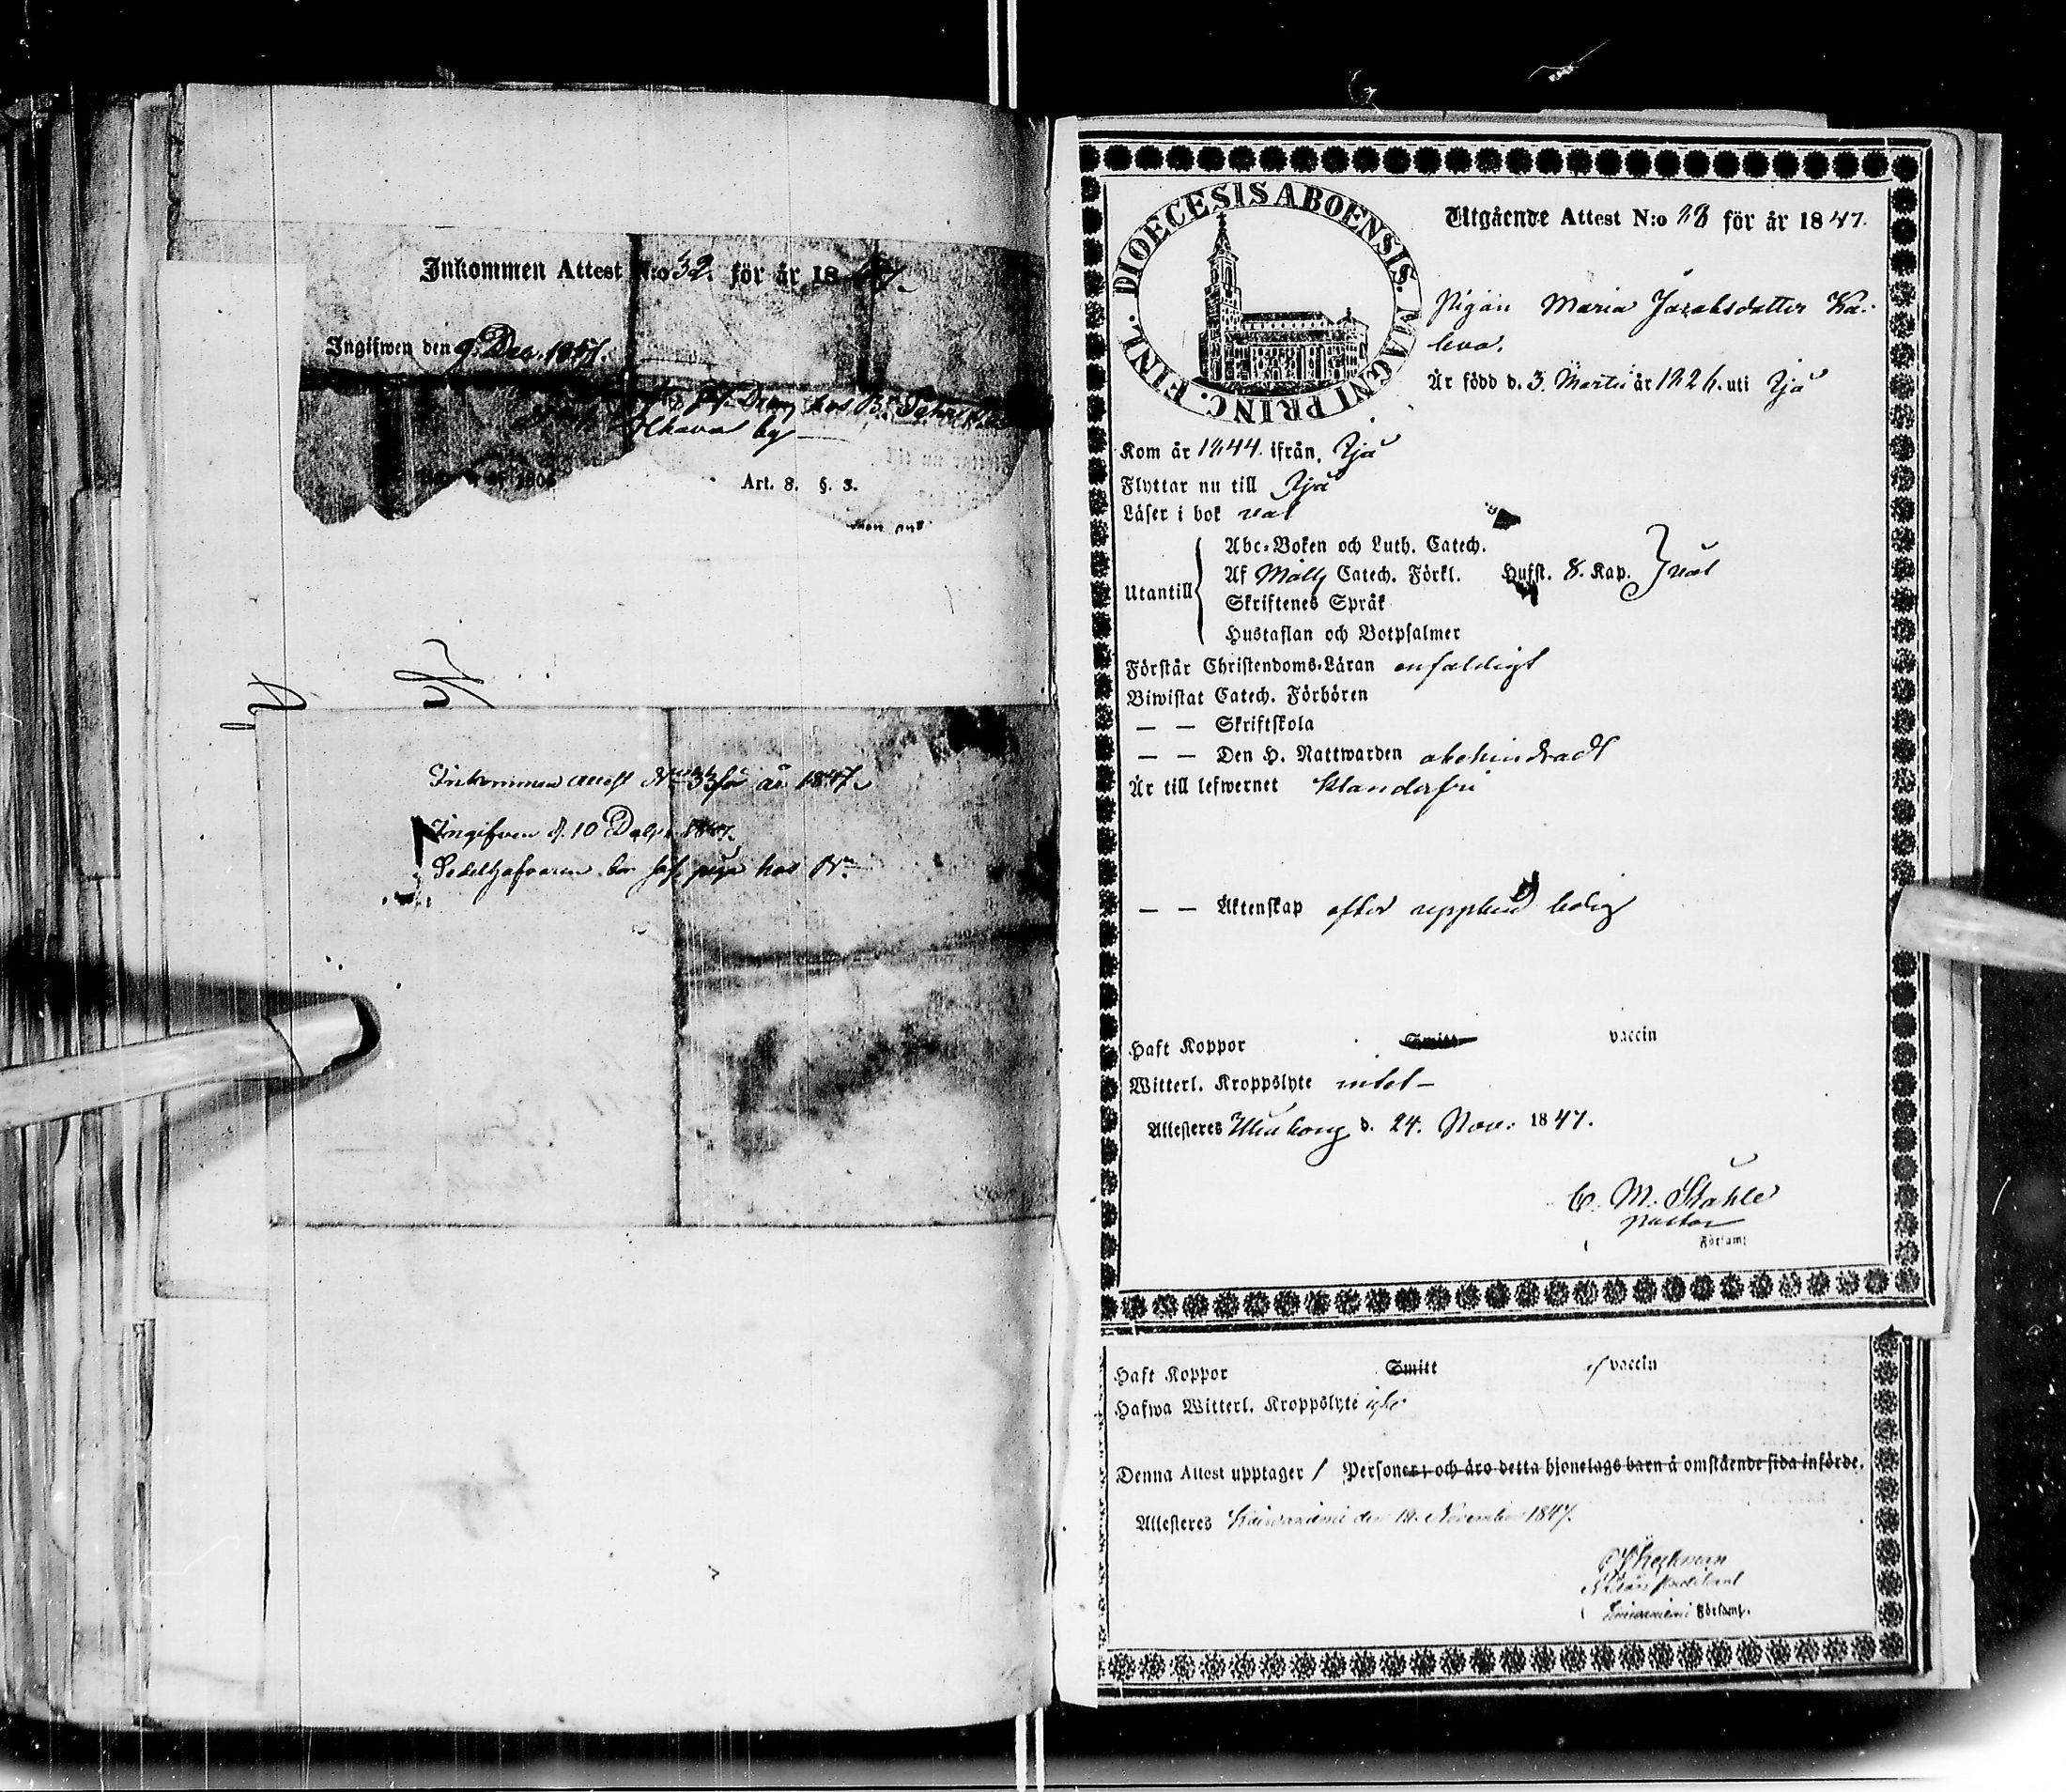 Inkommen Attest N:o 32. för år 1847.
Ingifwen den 9. Dec. 1847.
hos
by
Art. 8. §. 3.
Inkommen attest N:o 33 för år 1847.
Ingifven d. 10 1847.
Sedelhafvaren bor hos
DIOECESIS ABOENSIS. MAGNI PRINC. FINL.
Utgående Attest N:o 28 för år 1847.
Pigan Maria Jacobsdotter Ka-
leva.
Är född d. 3. Martii år 1826. uti Ijo
Kom år 1844. ifrån, Ijo
Flyttar nu till Ijo
Läser i bok väl
Abc-Boken och Luth. Catech.
Utantill Af Catech. Förkl. Hufst. 8. Kap. väl
Skriftenes Språk
Hustaflan och Botpsalmer
Förstår Christendoms-Läran enfaldigt
Biwistat Catech. Förhören
— — Skriftskola
— — Den H. Nattwarden obehindradt
Är till lefwernet klanderfri
— — Äktenskap efter ledig
Haft Koppor Smitt vaccin
Witterl. Kroppslyte intet —
Attesteres Uleåborg d. 24. Nov. 1847.
C. M. Ståhle
pastor
Förlamt
Haft Koppor Smitt vaccin
Hafwa Witterl. Kroppslyte
Denna Attest upptager 1 Personer, och äro detta hjonelags barn å omstående sida införde.
Attesteres den November 1847.
Församl.